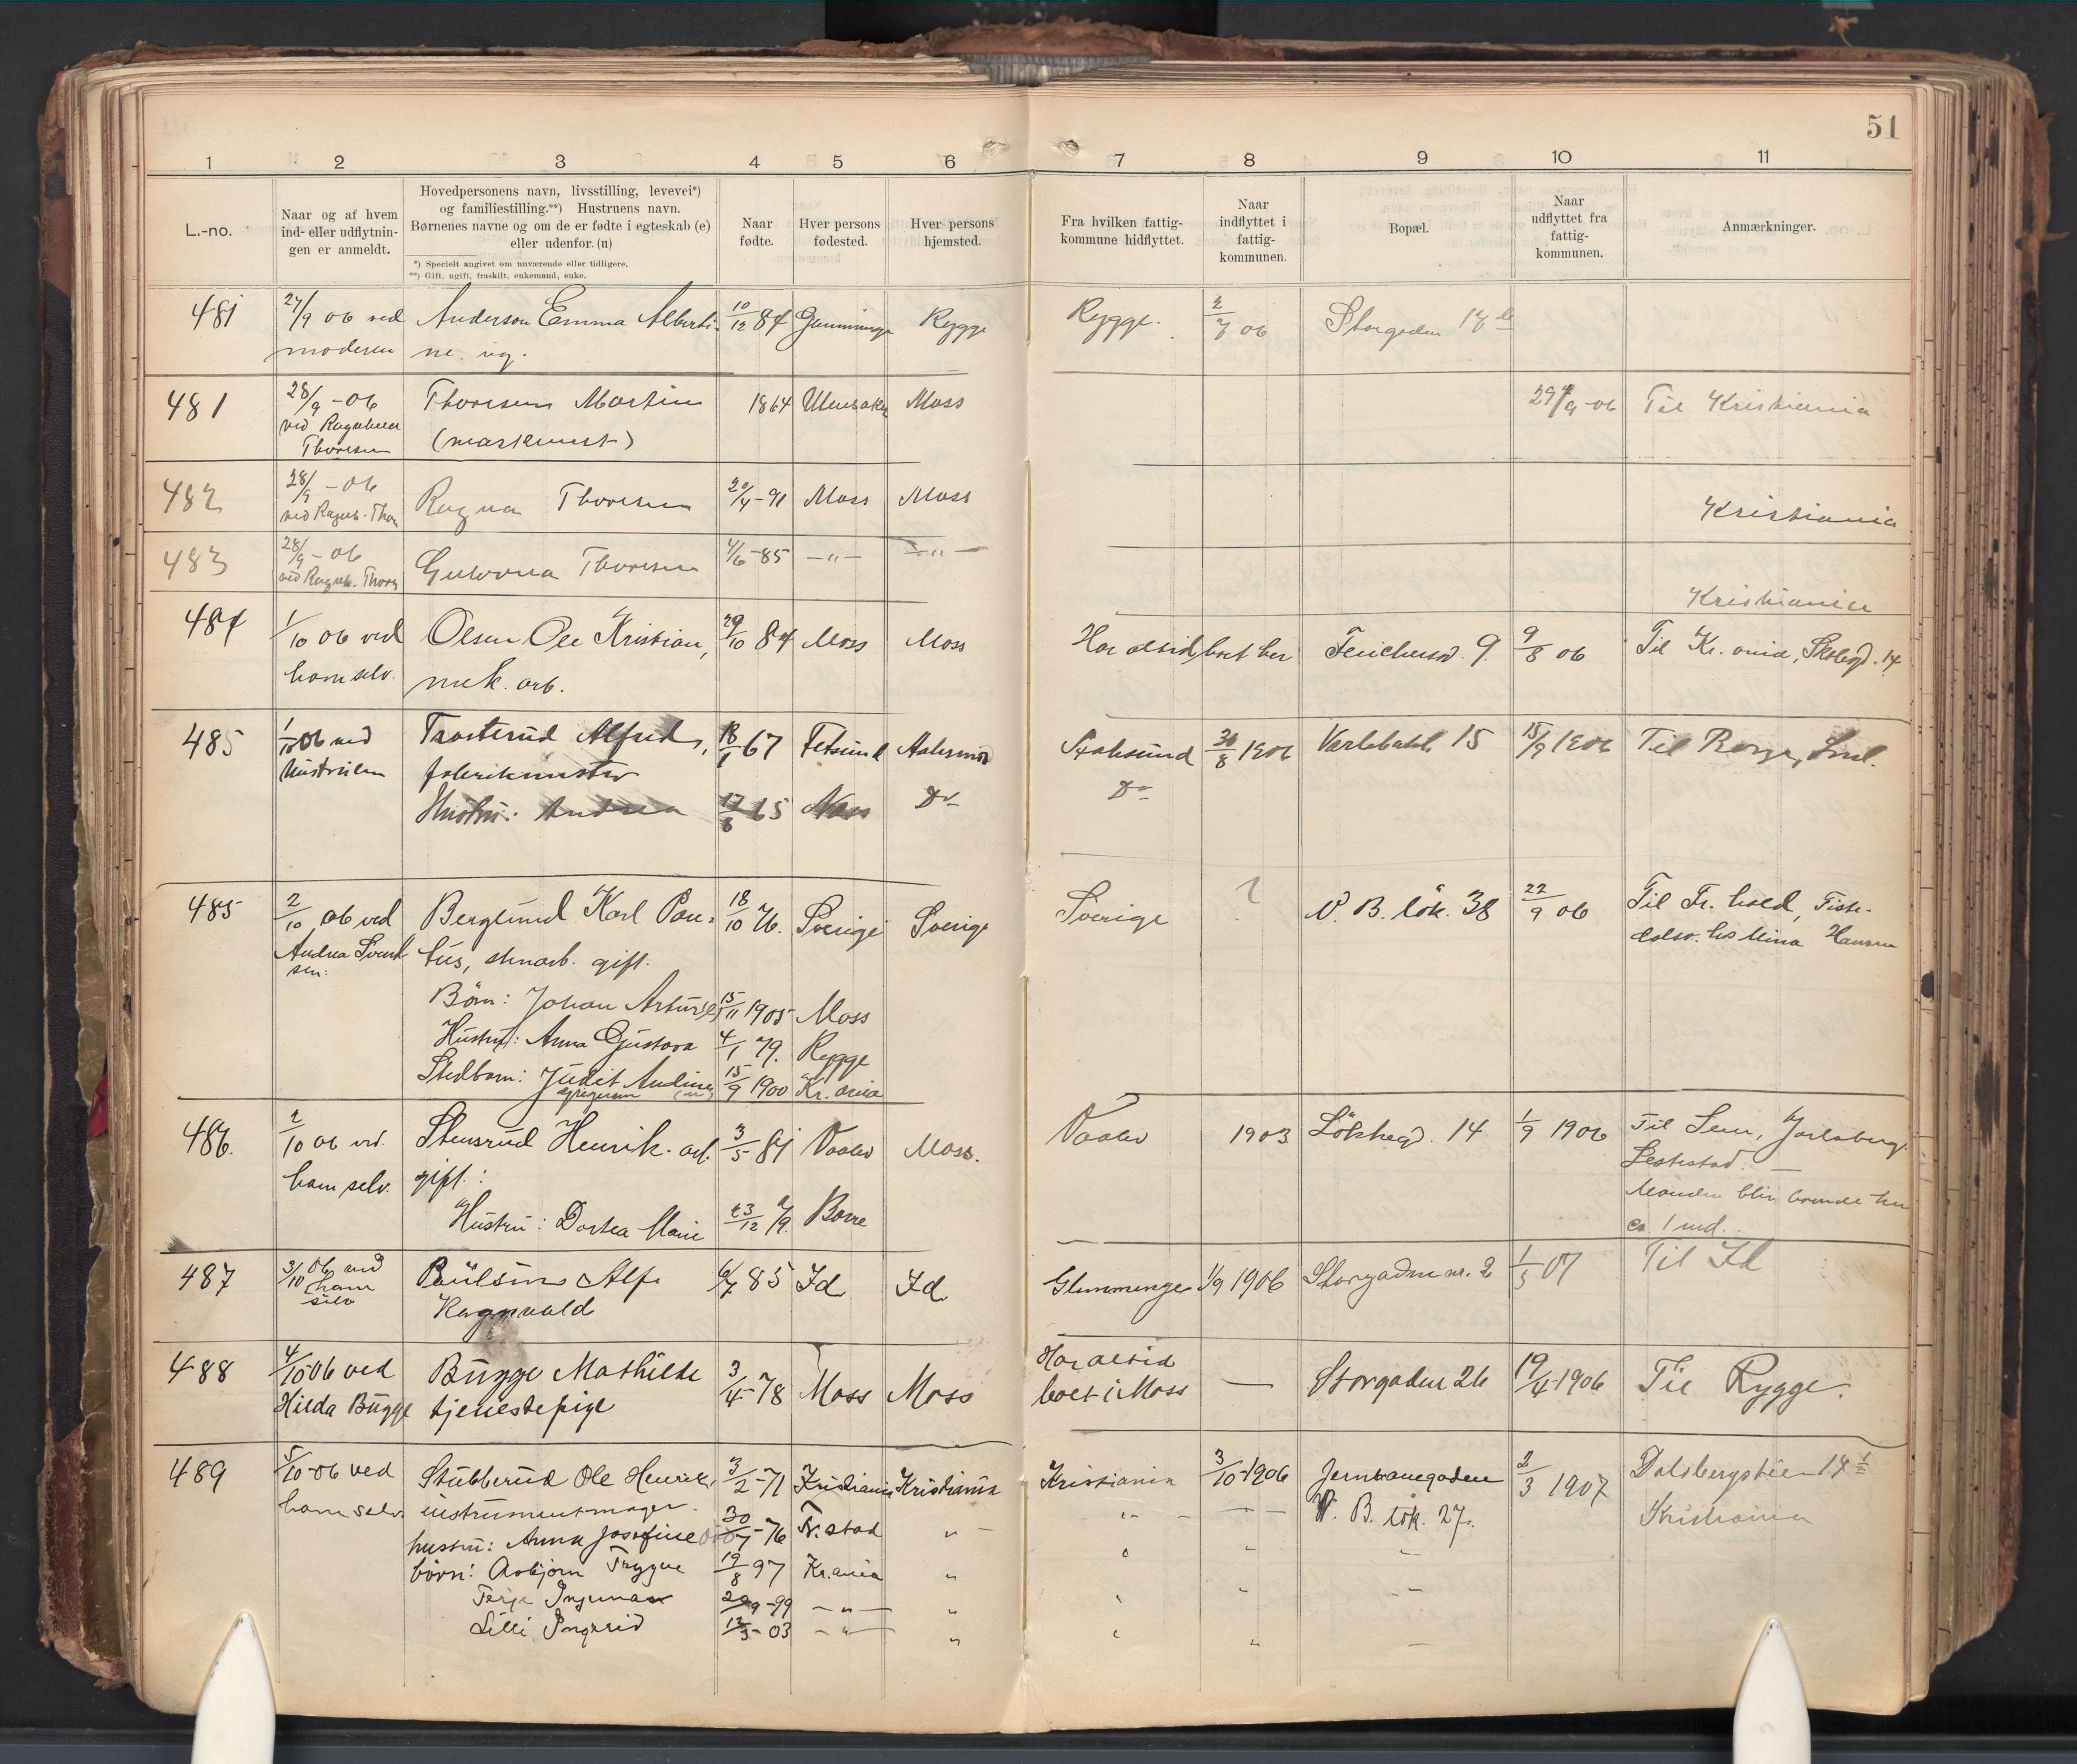 51
1 2 3 4 5 6 7 8 9 10 11
L.-no.
Naar og af hvem
ind- eller udflytnin-
gen er anmeldt.
Hovedpersonens navn, livsstilling, levevei*)
og familiestilling.**) Hustruens navn.
Børnenes navne og om de er fødte i egteskab (e)
eller udenfor. (u)
*) Specielt angivet om nuværende eller tidligere.
**) Gift, ugift, fraskilt, enkemand, enke.
Naar
fødte.
Hver persons
fødested.
Hver persons
hjemsted.
Fra hvilken fattig-
kommune hidflyttet.
Naar
indflyttet i
fattig-
kommunen.
Bopæl.
Naar
udflyttet fra
fattig-
kommunen.
Anmærkninger.
481 27/9 06 ved Anderson Emma Alberti- 10/12 84 Rygge Rygge. 2/7 06 Storgaden
moderen ne. ug.
481 28/9 -06 Thoresen Martin 1864 Ullensaker Moss 29/9-06 Til Kristiania
ved
Thoresen
482 28/9 -06 Ragna Thoresen 20/4-91 Moss Moss Kristiania
483 28/9 -06 Thoresen 4/6-85 -"- -"- Kristiania
484 1/10 06 ved Olsen Ole Kristian, 29/10 84 Moss Moss Har altid boet her 9. 9/8 06 Til Kr.ania, 14
ham selv. mek. arb.
485 1/10 06 ved Trosterud Alfred, 18/1 67 Fetsund 1906 15 15/9 1906 Til Borge, Sml.
Hustruen
Hustru: Andrea 17/8 65 Moss Do Do
485 2/10 06 ved Berglund Karl Pon- 18/10 76. Sverige Sverige Sverige ? V. B. løk. 38 22/9 06 Til Fr.hald,
Andrea Svend tus, stenarb. gift. hos Mina Hansen
sen.
Børn: Johan Artur (e) 15/11 1905 Moss
Hustru: Anna Gustava 4/1 79. Rygge
Stedbarn: Judit Andine 15/9 1900 Kr.ania
486. 2/10 06 ved Stensrud Henrik. arb. 3/5 81 Vaaler Moss. Vaaler 1903 14 1/9 1906 Til Sem, Jarlsberg.
ham selv. gift.:
Hustru: Dortea Marie 23/12 79. Borre Manden blir boende her
ca. 1 md.
487 3/10 06 ved Paulsen Alf 6/7 85 Id Id Glemminge 1/9 1906 Storgaden nr. 2 1/5 07 Til Id
ham
selv
Ragnvald
488 4/10 06 ved Bugge Mathilde 3/4-78 Moss Moss Har altid — Storgaden 26 19/4-1906 Til Rygge.
Hilda Bugge tjenestepige boet i Moss
489 5/10-06 ved Stubberud Ole Henrik, 3/2-71 Kristiania Kristiania Kristiania 3/10-1906 Jernbanegaden 2/3 1907 Dalsbergstien
ham selv instrumentmager. V. B. løk. 27. Kristiania
hustru: Anna Josefine 30/7-76 Fr.stad "
børn: Asbjørn Trygve 19/8 97 Kr.ania "
Terje Ingemar 9-99 -"- "
Lilli Ingrid 13/3-03 -"- "